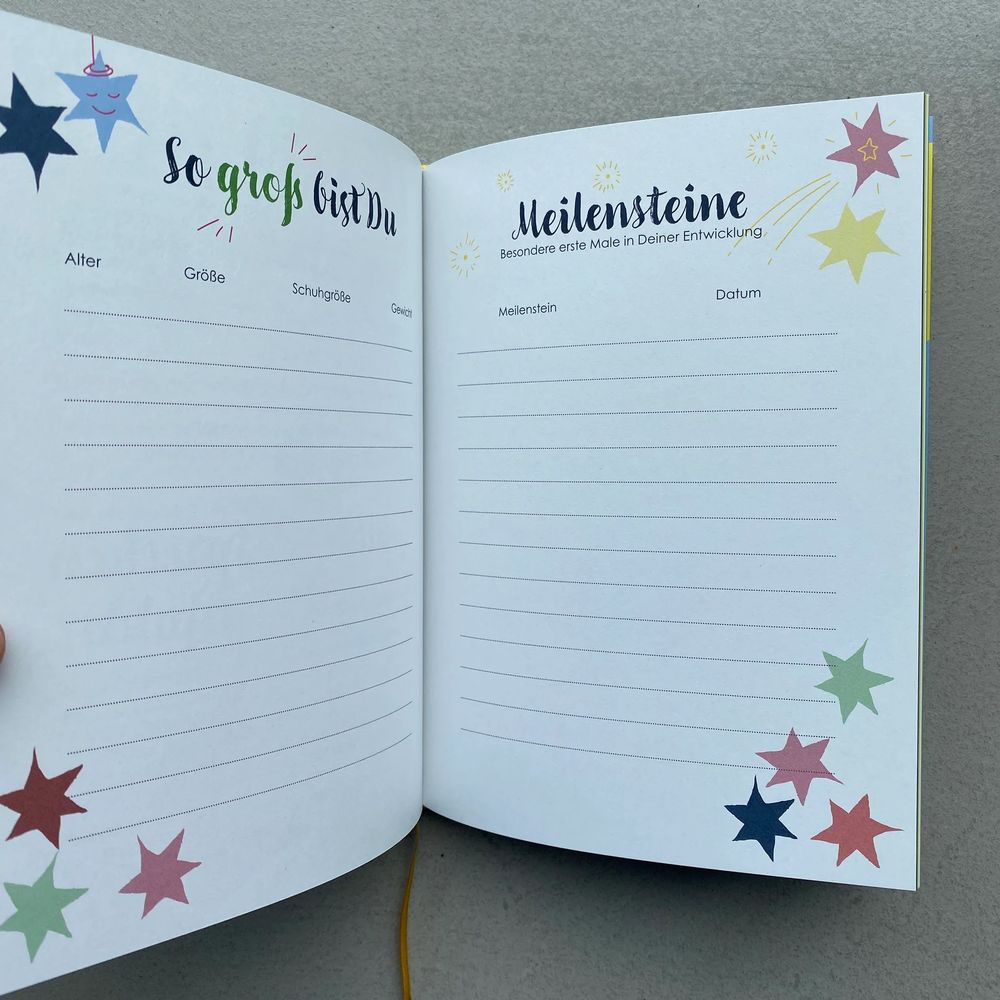 So groß bist Du
Alter Größe Schuhgröße Gewicht
Meilensteine
Besondere erste Male in Deiner Entwicklung
Meilenstein Datum